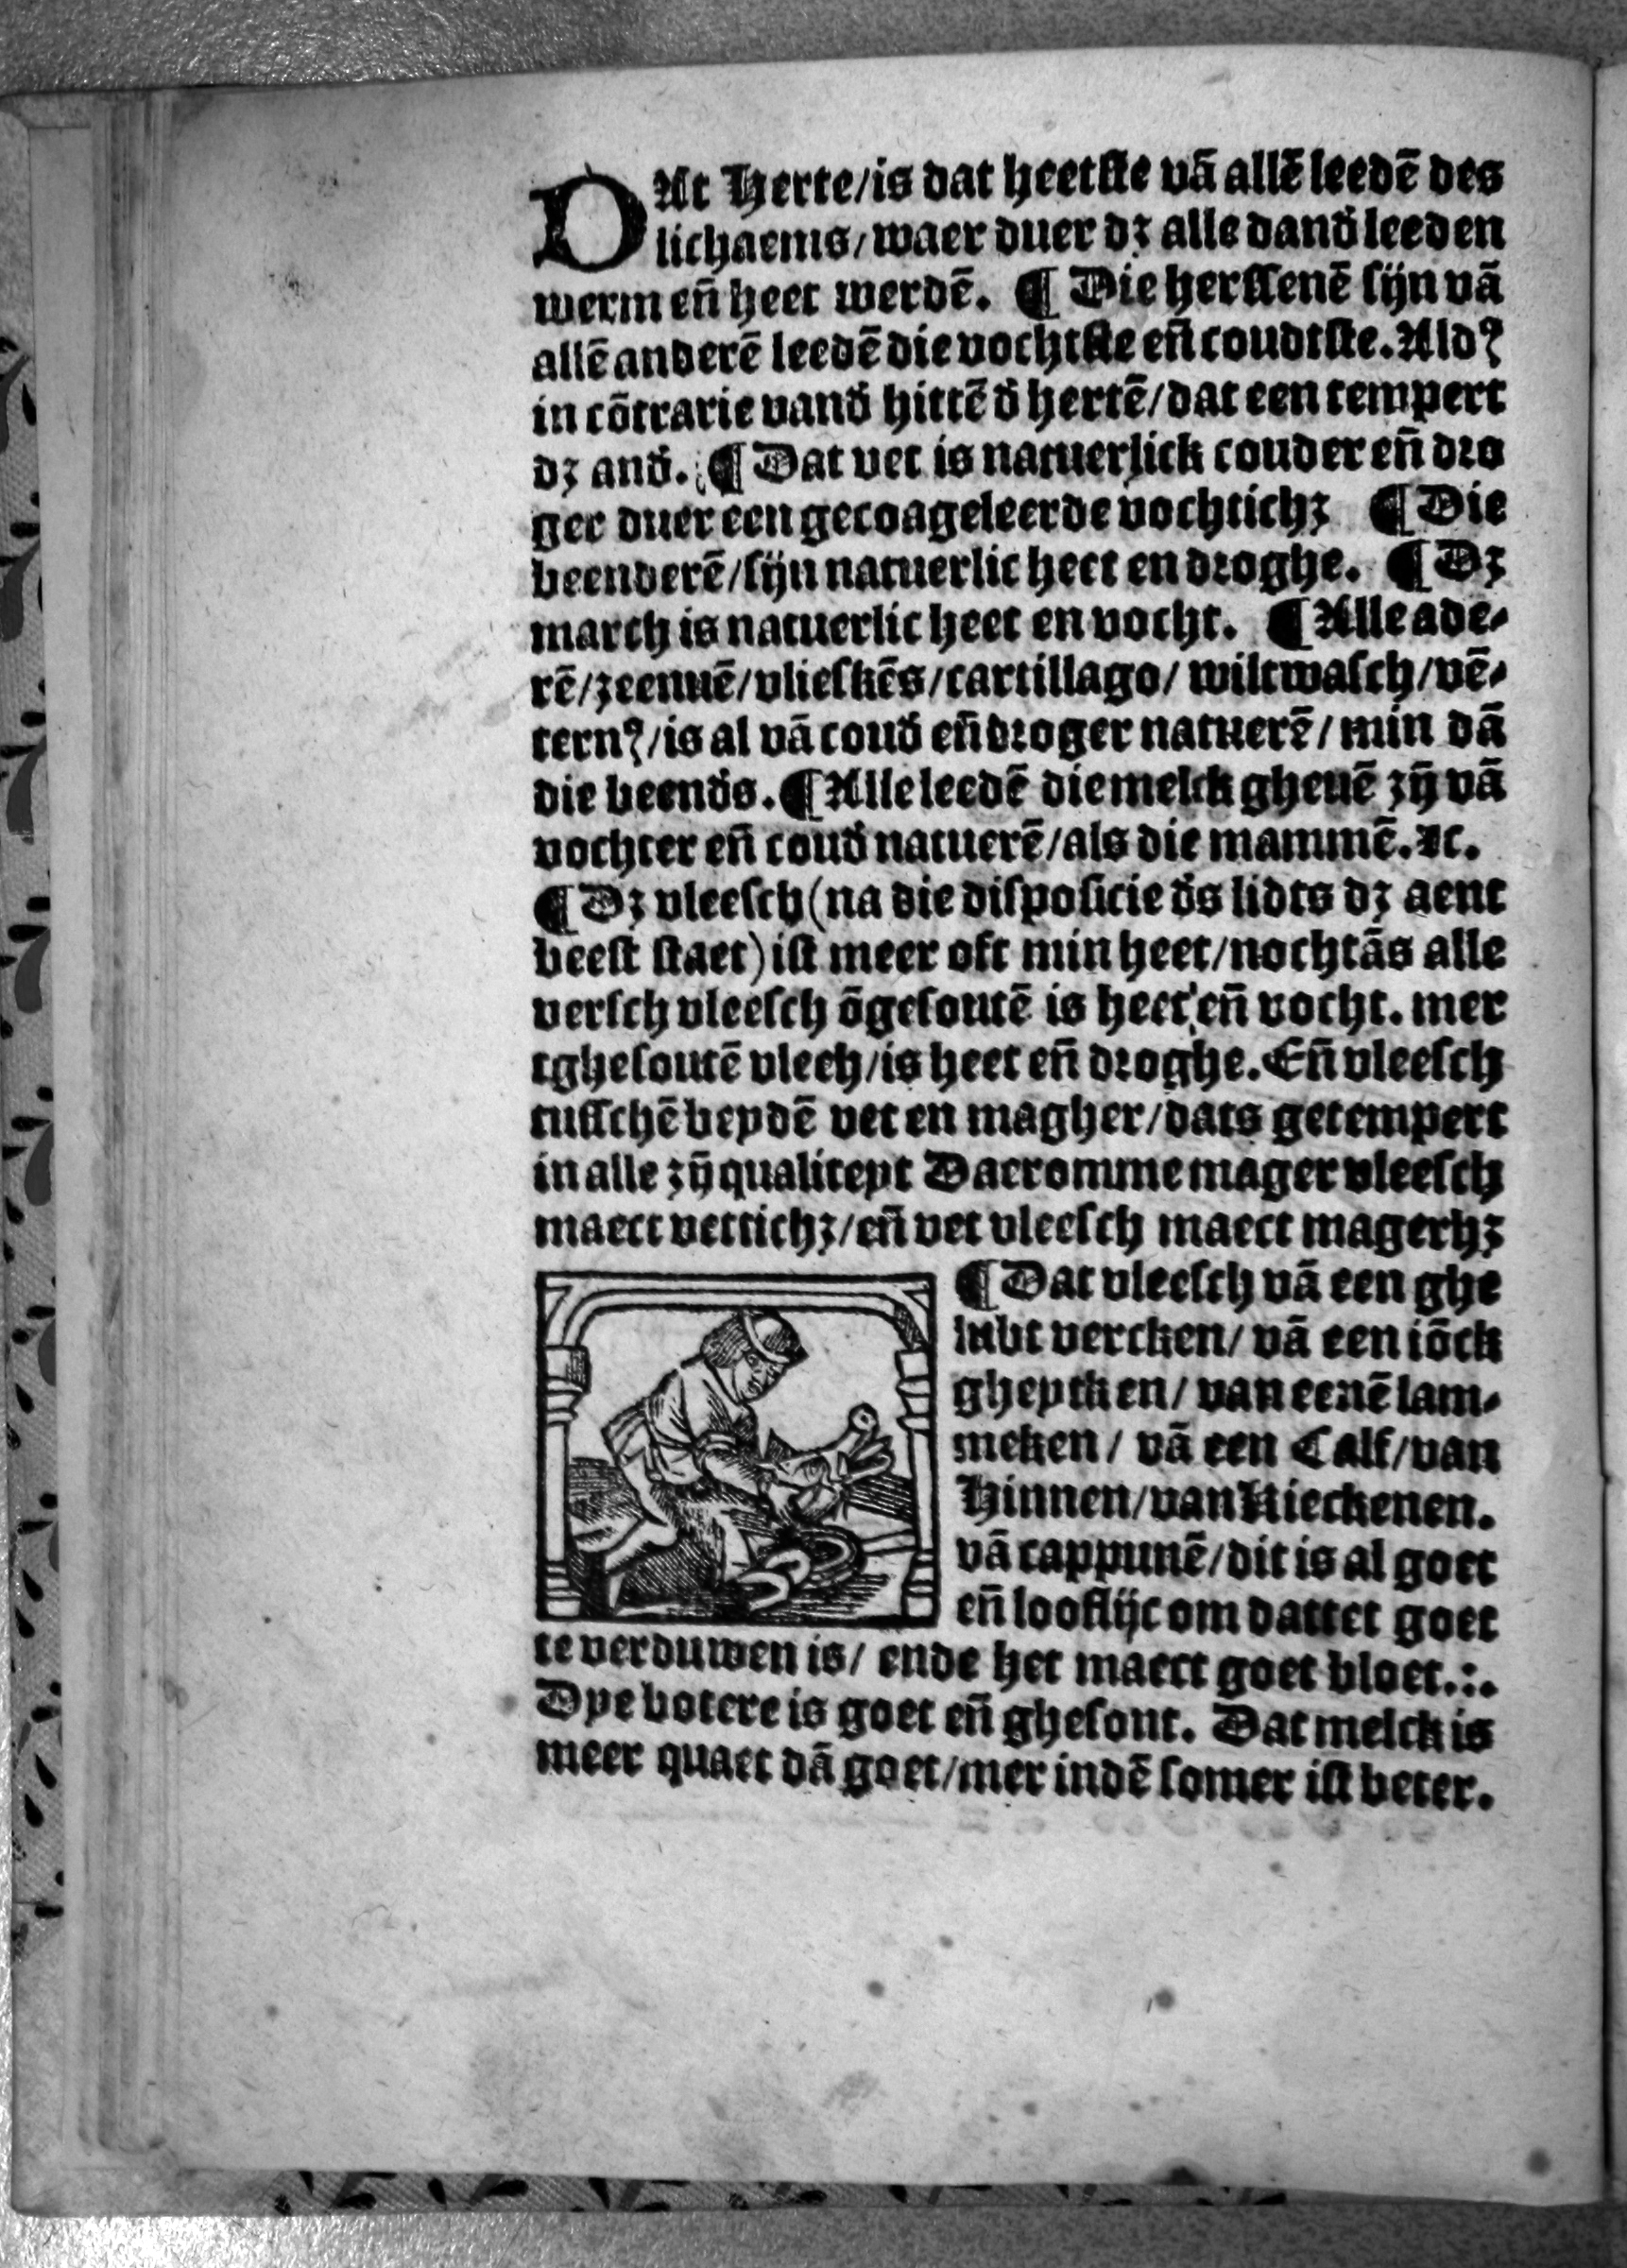 DAt Herte/is dat heetste vā allē leedē des
lichaems/waer duer dz alle dand̄ leeden
werm en̄ heet werdē. ¶ Die herssenē sijn vā
allē anderē leedē die vochtste en̄ coudtste. Ald?
in cōtrarie vand̄ hittē d̄ hertē/dat een tempert
dz and̄. ¶ Dat vet is natuerlick couder en̄ dro
ger duer een gecoageleerde vochtichz ¶ Die
beenderē/sijn natuerlic heet en droghe. ¶ Dz
march is natuerlic heet en vocht. ¶ Alle ade⸗
rē/zeenuē/vlieskēs/cartillago/wiltwasch/vē⸗
tern?/is al vā coud̄ en̄ droger natuerē/min dā
die beend̄s. ¶ Alle leedē die melck gheuē zȳ vā
vochter en̄ coud̄ natuerē/als die mammē. ⁊c.
¶ Dz vleesch (na die disposicie d̄s lidts dz aent
beest staet) ist meer oft min heet/nochtās alle
versch vleesch ōgesoutē is heet en̄ vocht. mer
tghesoutē vleeh/is heet en̄ droghe. En̄ vleesch
tusschē beydē vet en magher/dats getempert
in alle zȳ qualiteyt Daeromme mager vleesch
maect vettichz/en̄ vet vleesch maect magerhz
¶ Dat vleesch vā een ghe
lubt vercken/vā een iōck
gheytken/van eenē lam⸗
meken/vā een Calf/van
Hinnen/van Kieckenen.
vā cappunē/dit is al goet
en̄ looflijc om dattet goet
te verduwen is/ende het maect goet bloet.:.
Dye botere is goet en̄ ghesont. Dat melck is
meer quaet dā goet/mer indē somer ist beter.